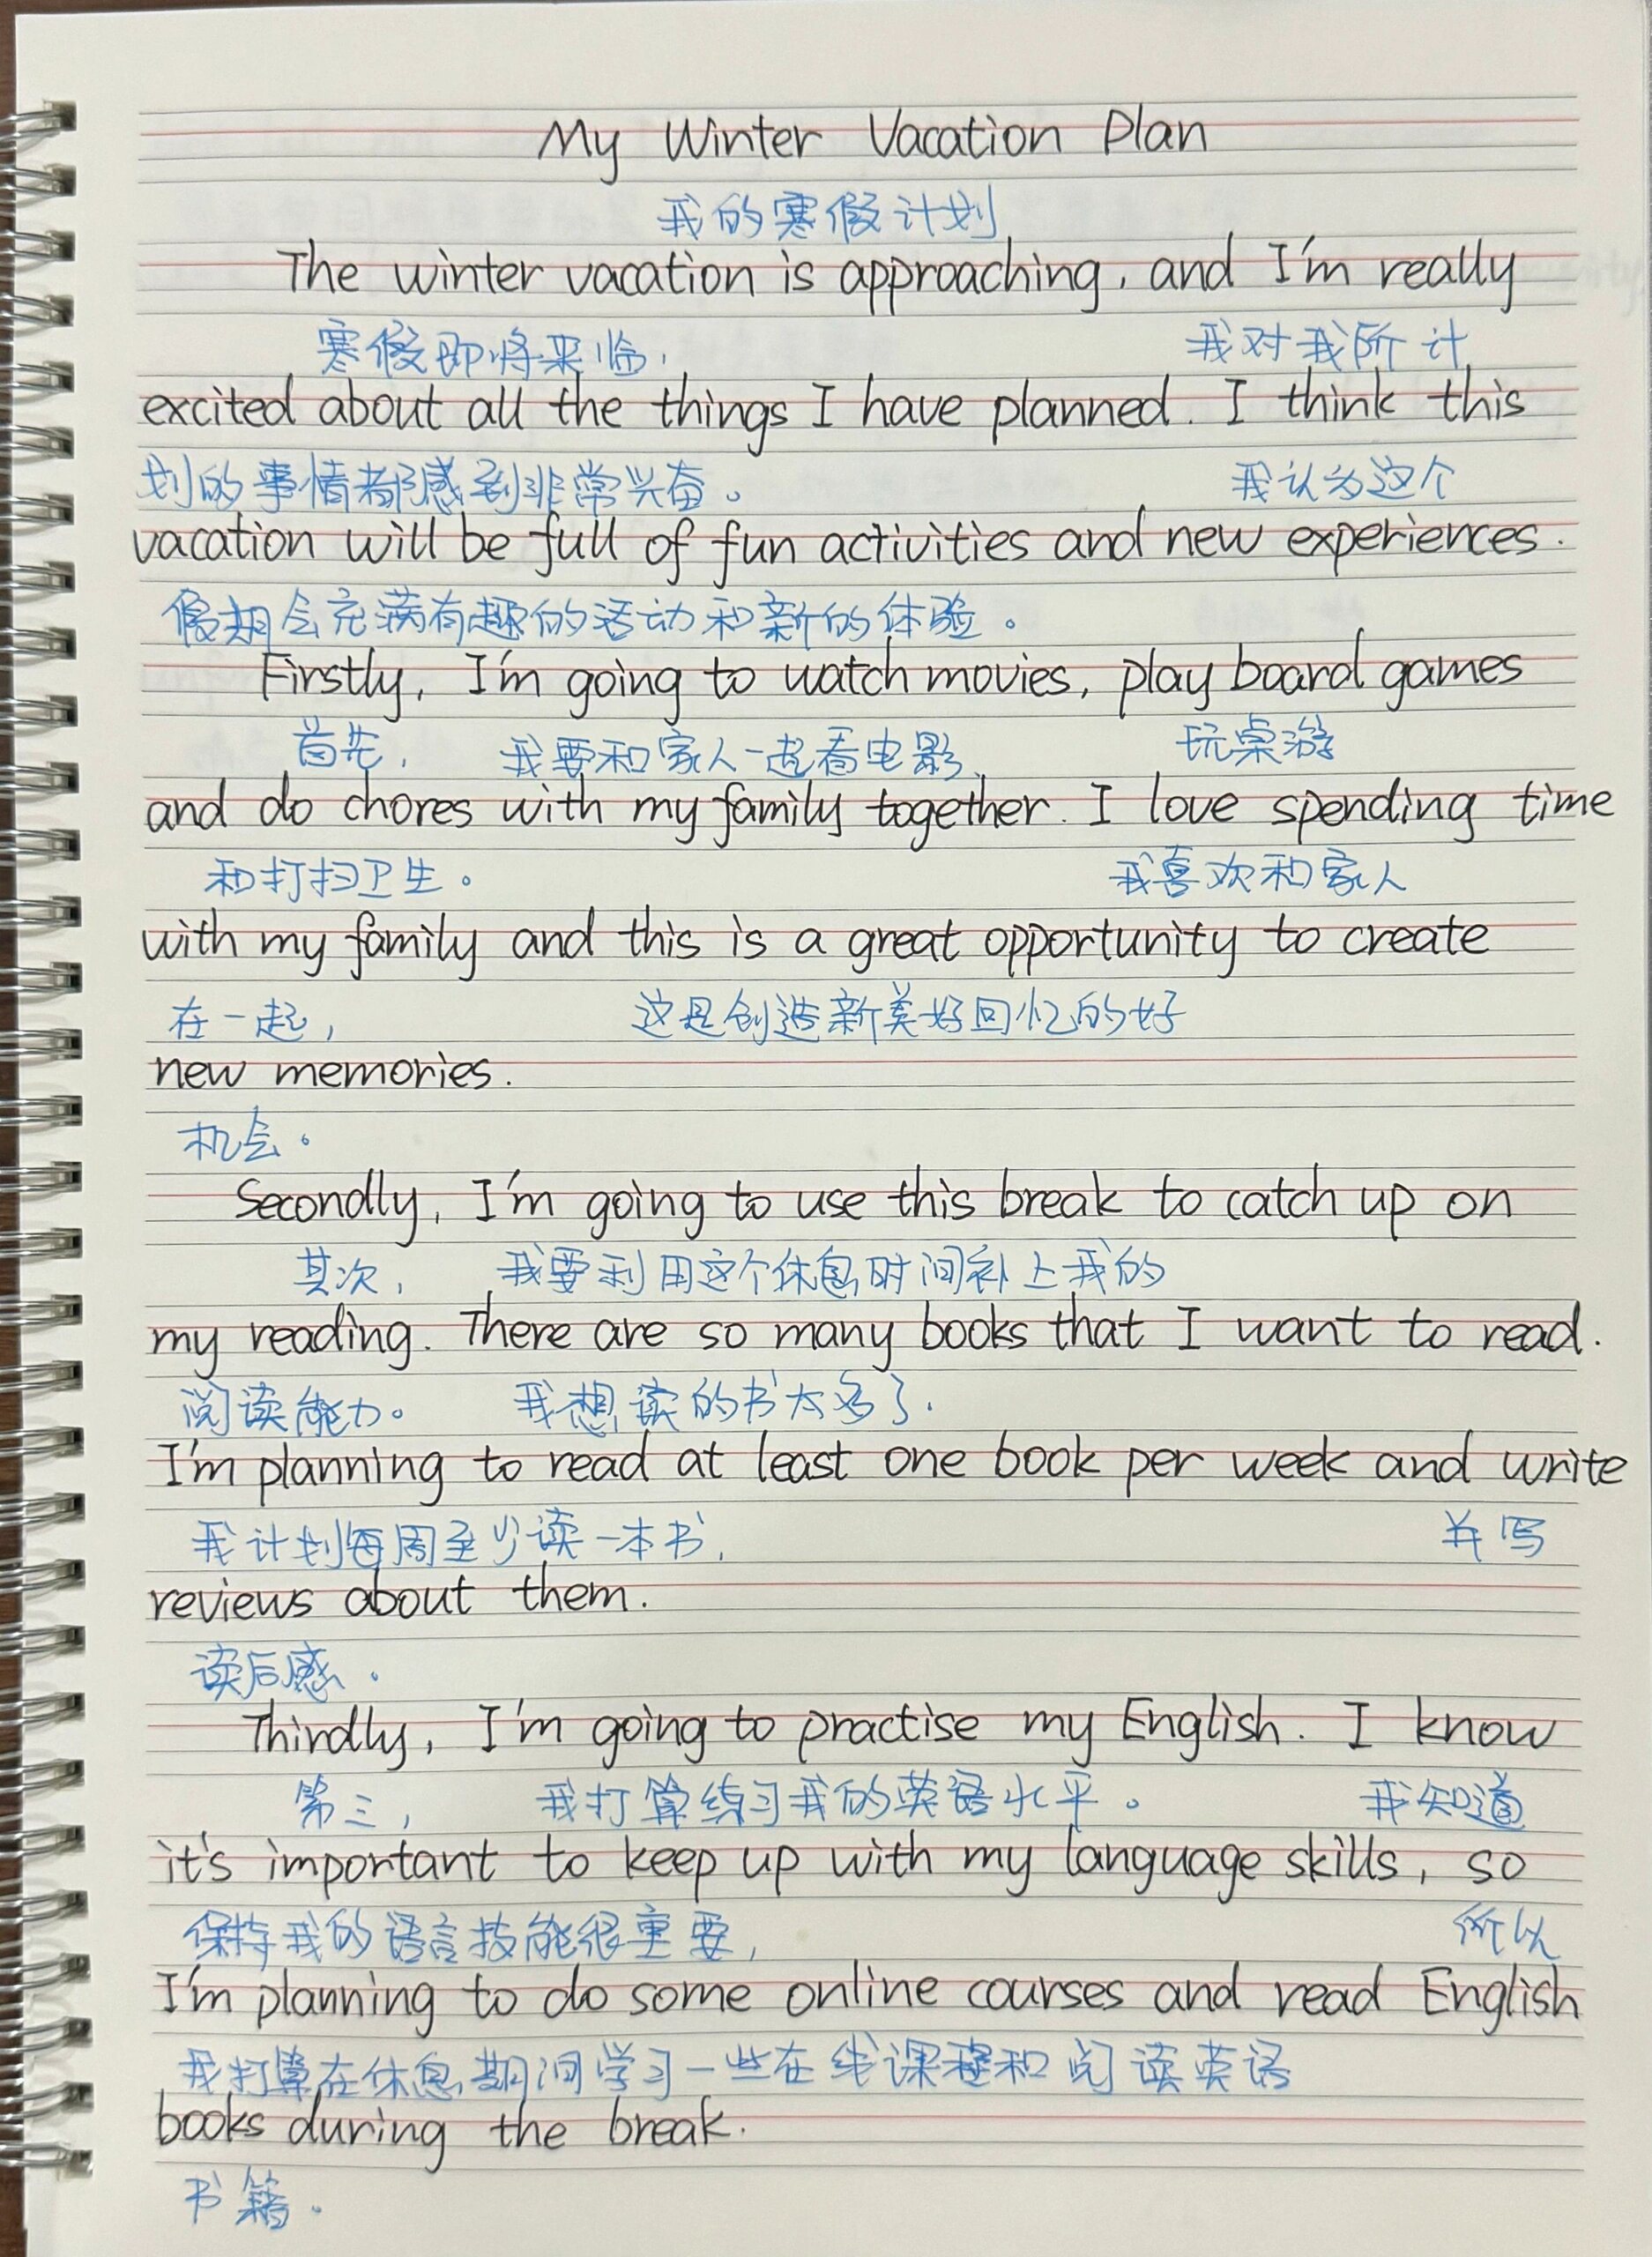 My Winter Vacation Plan
我的寒假计划
The winter vacation is approaching, and I'm really
寒假即将来临, 我对我所计
excited about all the things I have planned. I think this
划的事情都感到非常兴奋。 我认为这个
vacation will be full of fun activities and new experiences.
假期会充满有趣的活动和新的体验。
Firstly, I'm going to watch movies, play board games
首先, 我要和家人一起看电影、 玩桌游
and do chores with my family together. I love spending time
和打扫卫生。 我喜欢和家人
with my family and this is a great opportunity to create
在一起, 这是创造新美好回忆的好
new memories.
机会。
Secondly, I'm going to use this break to catch up on
其次, 我要利用这个休息时间补上我的
my reading. There are so many books that I want to read.
阅读能力。 我想读的书太多了.
I'm planning to read at least one book per week and write
我计划每周至少读一本书, 并写
reviews about them.
读后感.
Thirdly, I'm going to practise my English. I know
第三, 我打算练习我的英语水平。 我知道
it's important to keep up with my language skills, so
保持我的语言技能很重要, 所以
I'm planning to do some online courses and read English
我打算在休息期间学习一些在线课程和阅读英语
books during the break.
书籍.